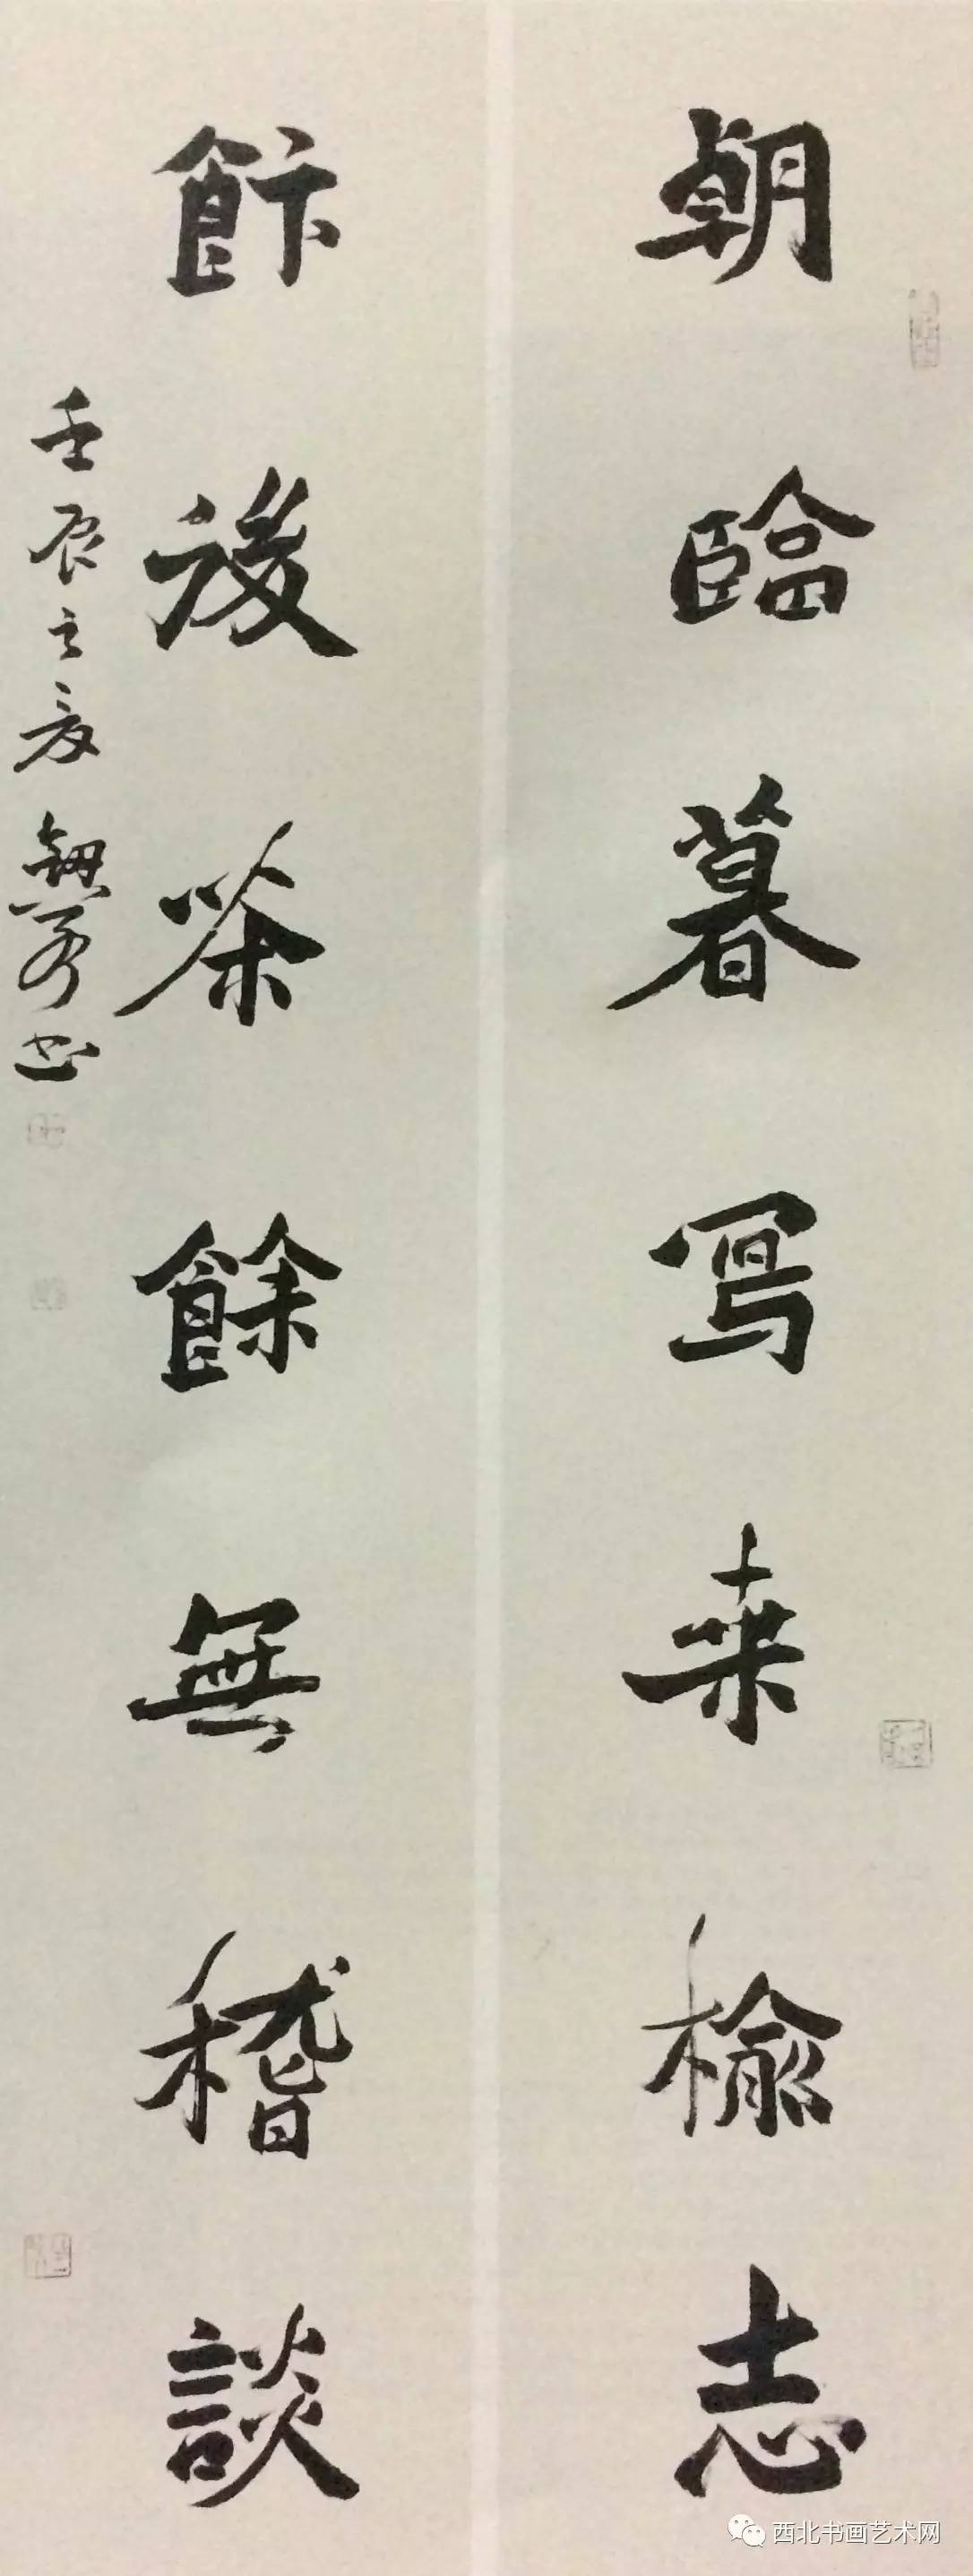 朝臨暮写来檢志
飰後茶餘無稽談
壬辰之夏
书
西北书画艺术网